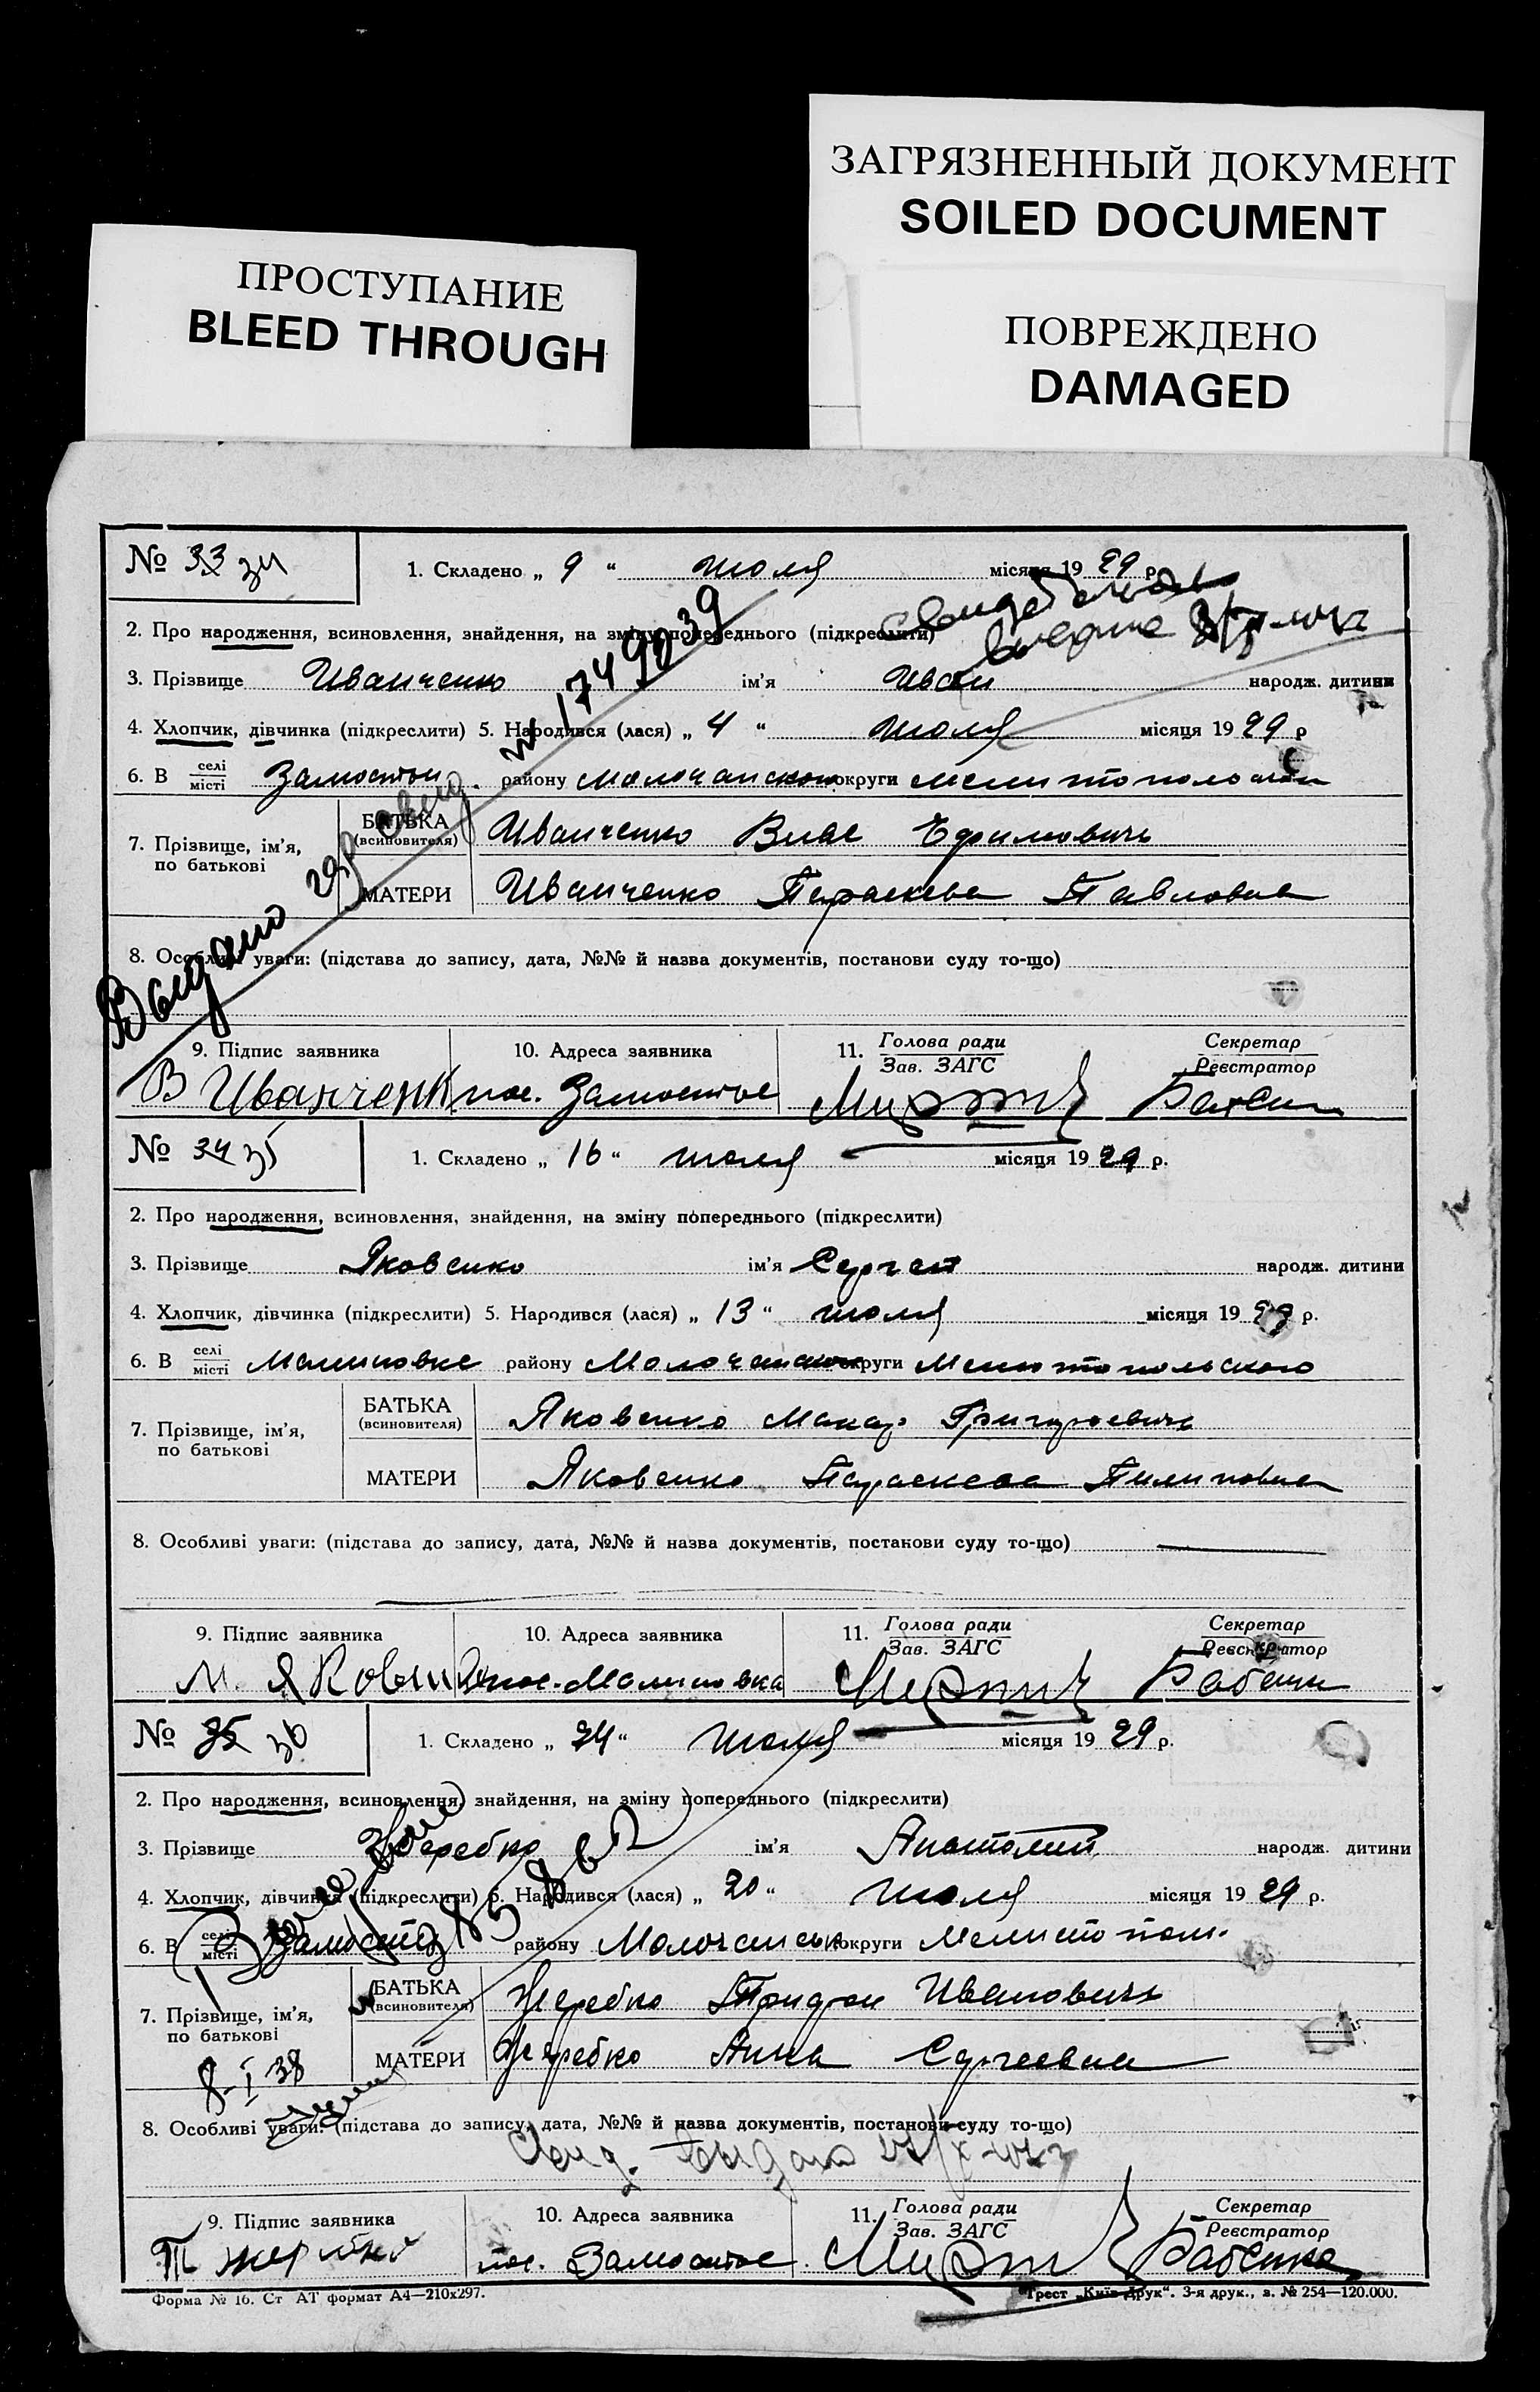 ЗАГРЯЗНЕННЫЙ ДОКУМЕНТ
SOILED DOCUMENT
ПРОСТУПАНИЕ
BLEED THROUGH
ПОВРЕЖДЕНО
DAMAGED
№ 33 34
1. Складено „ 9 “ июля місяця 19 29 р.
2. Про народження, всиновлення, знайдення, на зміну попереднього (підкреслити)
3. Прізвище Иванченко ім'я Иван народж. дитини
4. Хлопчик, дівчинка (підкреслити) 5. Народився (лася) „ 4 “ июля місяця 19 29 р
6. В селі місті Замостьи району Молочанского округи
7. Прізвище, ім'я, по батькові
БАТЬКА (всиновителя) Иванченко Влас Ефимовичь
МАТЕРИ Иванченко Параскева Павловна
Выдано
№ 1749039
8. Особливі уваги: (підстава до запису, дата, №№ й назва документів, постанови суду то-що)
9. Підпис заявника
10. Адреса заявника
11. Голова ради Зав. ЗАГС
Секретар Реєстратор
В Иванченк
пос. Замостье
№ 34 35
1. Складено „ 16 “ июля місяця 19 29 р.
2. Про народження, всиновлення, знайдення, на зміну попереднього (підкреслити)
3. Прізвище Яковенко ім'я Сергей народж. дитини
4. Хлопчик, дівчинка (підкреслити) 5. Народився (лася) „ 13 “ июля місяця 19 29 р.
6. В селі місті Малиновке району Молочанского округи Мелитопольского
7. Прізвище, ім'я, по батькові
БАТЬКА (всиновителя) Яковенко Макар Григорьевичь
МАТЕРИ Яковенко Параскева Пилиповна
8. Особливі уваги: (підстава до запису, дата, №№ й назва документів, постанови суду то-що)
9. Підпис заявника
10. Адреса заявника
11. Голова ради Зав. ЗАГС
Секретар Реєстратор
пос. Малиновка
Бабенк
№ 35 36
1. Складено „ 24 “ июля місяця 19 29 р.
2. Про народження, всиновлення, знайдення, на зміну попереднього (підкреслити)
3. Прізвище Жеребко ім'я Анатолий народж. дитини
4. Хлопчик, дівчинка (підкреслити) 5. Народився (лася) „ 20 “ июля місяця 19 29 р.
6. В селі місті району округи Мелитопол.
7. Прізвище, ім'я, по батькові
БАТЬКА (всиновителя) Жеребко Трифон Ивановичь
МАТЕРИ Жеребко Анна Сергеевна
8-I 38
8. Особливі уваги: (підстава до запису, дата, №№ й назва документів, постанови суду то-що)
Свид. выдано
9. Підпис заявника
10. Адреса заявника
11. Голова ради Зав. ЗАГС
Секретар Реєстратор
пос. Замостье
Бабенко
Форма № 16. Ст АТ формат А4—210х297.
Трест „Київ-Друк“. 3-я друк., з. № 254—120.000.